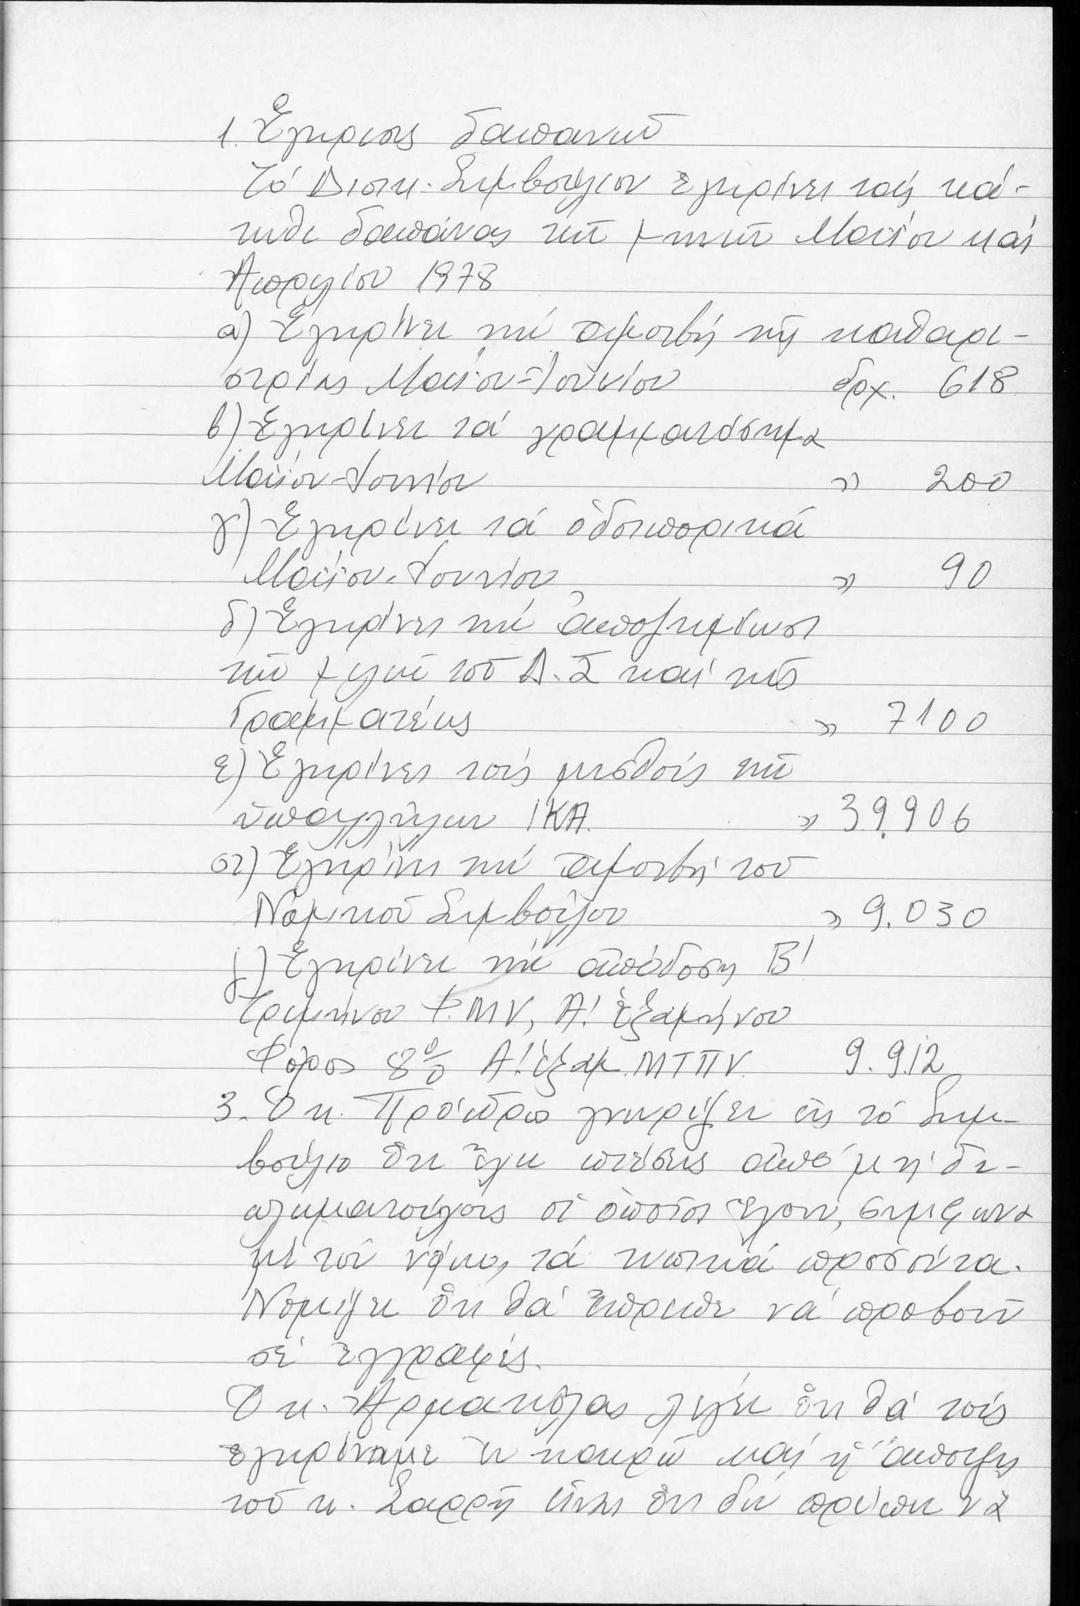 1. Ἔγκρισις δαπανῶν
Τό Διοικ. Συμβούλιον ἐγκρίνει τάς κά-
τωθι δαπάνας τῶν μηνῶν Μαΐου καί
Ἀπριλίου 1978
α) Ἐγκρίνει τήν ἀμοιβή τῆς καθαρι-
στρίας Μαΐου-Ἰουνίου δρχ. 618
β) Ἐγκρίνει τά γραμματόσημα
Μαΐου-Ἰουνίου » 200
γ) Ἐγκρίνει τά ὁδοιπορικά
Μαΐου-Ἰουνίου » 90
δ) Ἐγκρίνει τήν ἀποζημίωσι
τῶν μελῶν τοῦ Δ.Σ καί τῆς
Γραμματέως » 7100
ε) Ἐγκρίνει τούς μισθούς τῶν
ὑπαλλήλων ΙΚΑ. » 39.906
στ) Ἐγκρίνει τήν ἀμοιβή τοῦ
Νομικοῦ Συμβούλου » 9.030
ζ) Ἐγκρίνει τήν ἀπόδοση Β'
Τριμήνου Φ.ΜΥ, Α! ἑξαμήνου
Φόρος 8% Α! ἑξαμ. ΜΤΠΥ 9.912
3. Ὁ κ. Πρόεδρος γνωρίζει εἰς τό Συμ-
βούλιο ὅτι ἔχει πιέσεις ἀπό μή δι-
πλωματούχους οἱ ὁποῖοι ἔχουν, σύμφωνα
μέ τόν νόμο, τά τυπικά προσόντα.
Νομίζει ὅτι θά ἔπρεπε νά προβοῦν
σέ ἐγγραφές.
Ὁ κ. Ἀρμακόλας λέγει ὅτι θά τούς
ἐγκρίναμε ἐν καιρῶ καί ἡ ἄποψις
τοῦ κ. Σαρρῆ εἶναι ὅτι δέν πρέπει νά